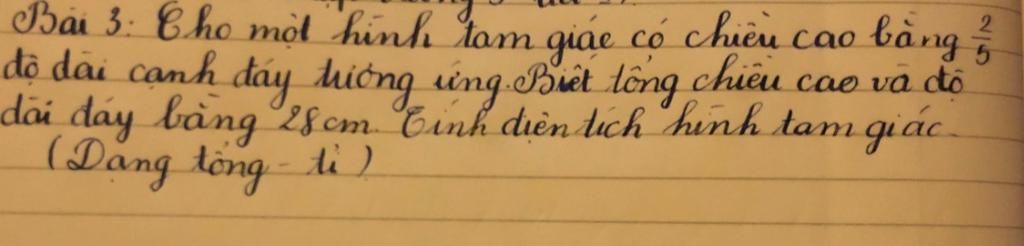 Bài 3: Cho một hình tam giác có chiều cao bằng 2/5
độ dài cạnh đáy tương ứng. Biết tổng chiều cao và độ
dài đáy bằng 28 cm. Tính diện tích hình tam giác.
(Dạng tổng - tỉ)